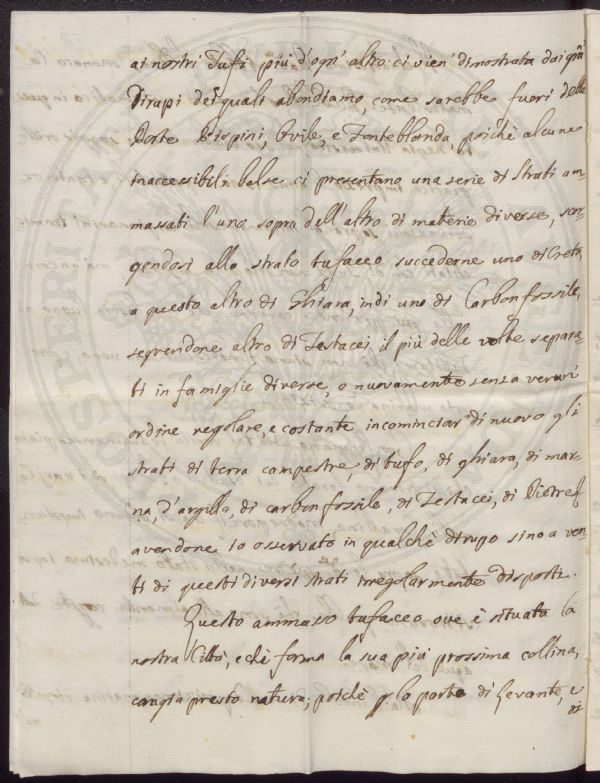 ai nostri Tufi più d'ogn' altro ci vien' dimostrata dai grā
Dirupi dei quali abondiamo, come sarebbe fuori delle
Porte Pispini, Ovile, e Fonteblanda, poichè alcune
inaccessibili balse ci presentano una serie di Strati am-
massati l'uno sopra dell'altro di materie diverse, scor-
gendosi allo strato tufaceo succederne uno di Creta,
a questo altro di Ghiara, indi uno di Carbon fossile,
seguendone altro di Testacei il più delle volte separa-
ti in famiglie diverse, e nuovamente senza verun'
ordine regolare, e costante incominciar' di nuovo gli
strati di terra campestre, di tufo, di ghiara, di mar-
na, d'argilla, di carbon fossile, di Testacei, di Pietre
avendone io osservato in qualchè dirupo sino a ven-
ti di questi diversi strati irregolarmente disposti.
Questo ammasso tufaceo ove è situata la
nostra Città, e chè forma la sua più prossima collina,
cangia presto natura; poichè p. la parte di Levante, e
di